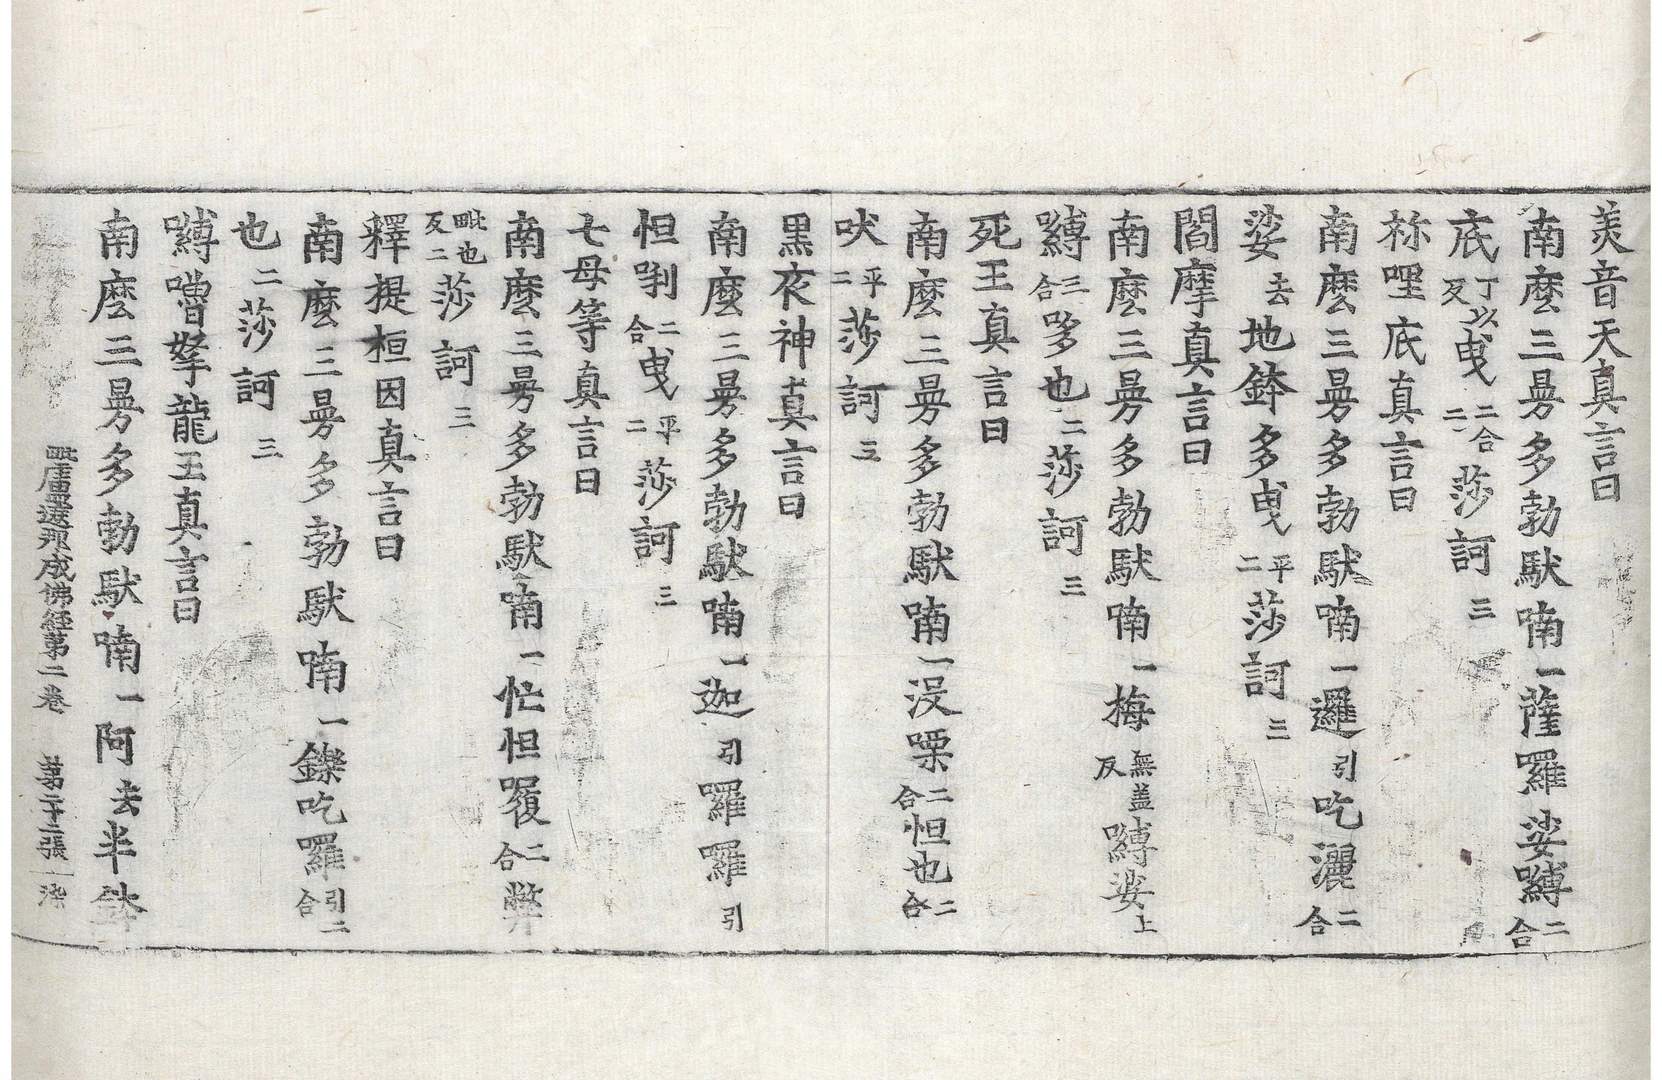 美音天真言曰
南麽三曼多勃馱喃一薩羅娑嚩二合
底丁以反曳二合二莎訶三
祢哩底真言曰
南麽三曼多勃馱喃一邏引吃灑二合
娑去地鉢多曳平二莎訶三
閻摩真言曰
南麽三曼多勃馱喃一梅無蓋反嚩娑上
嚩三合哆也二莎訶三
死王真言曰
南麽三曼多勃馱喃一没㗚二合怛也二合
吠平二莎訶三
黑夜神真言曰
南麽三曼多勃馱喃一迦引囉囉引
怛唎二合曳平二莎訶三
七母等真言曰
南麽三曼多勃馱喃一忙怛囉二合弊
毗也反二莎訶三
釋提桓因真言曰
南麽三曼多勃馱喃一鑠吃囉引二合
也二莎訶三
嚩嚕拏龍王真言曰
南麽三曼多勃馱喃一阿去半鉢
毗盧遮那成佛經第二卷 第二十二張 染